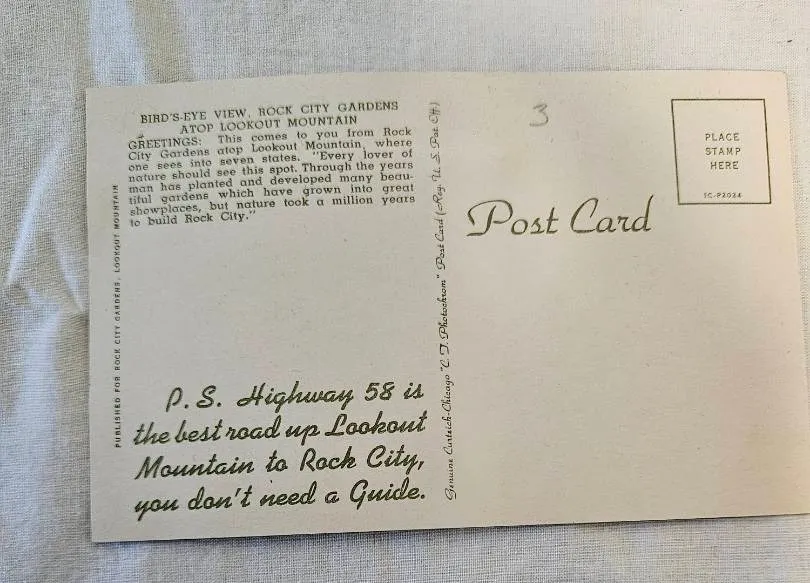 BIRD'S-EYE VIEW, ROCK CITY GARDENS
ATOP LOOKOUT MOUNTAIN
GREETINGS: This comes to you from Rock
City Gardens atop Lookout Mountain, where
one sees into seven states. "Every lover of
nature should see this spot. Through the years
man has planted and developed many beau-
tiful gardens which have grown into great
showplaces, but nature took a million years
to build Rock City."
PUBLISHED FOR ROCK CITY GARDENS, LOOKOUT MOUNTAIN
P.S. Highway 58 is
the best road up Lookout
Mountain to Rock City,
you don't need a Guide.
Genuine Curteich-Chicago "C. T. Photochrom" Post Card (Reg. U. S. Pat. Off.)
3
Post Card
PLACE
STAMP
HERE
1C-P2034